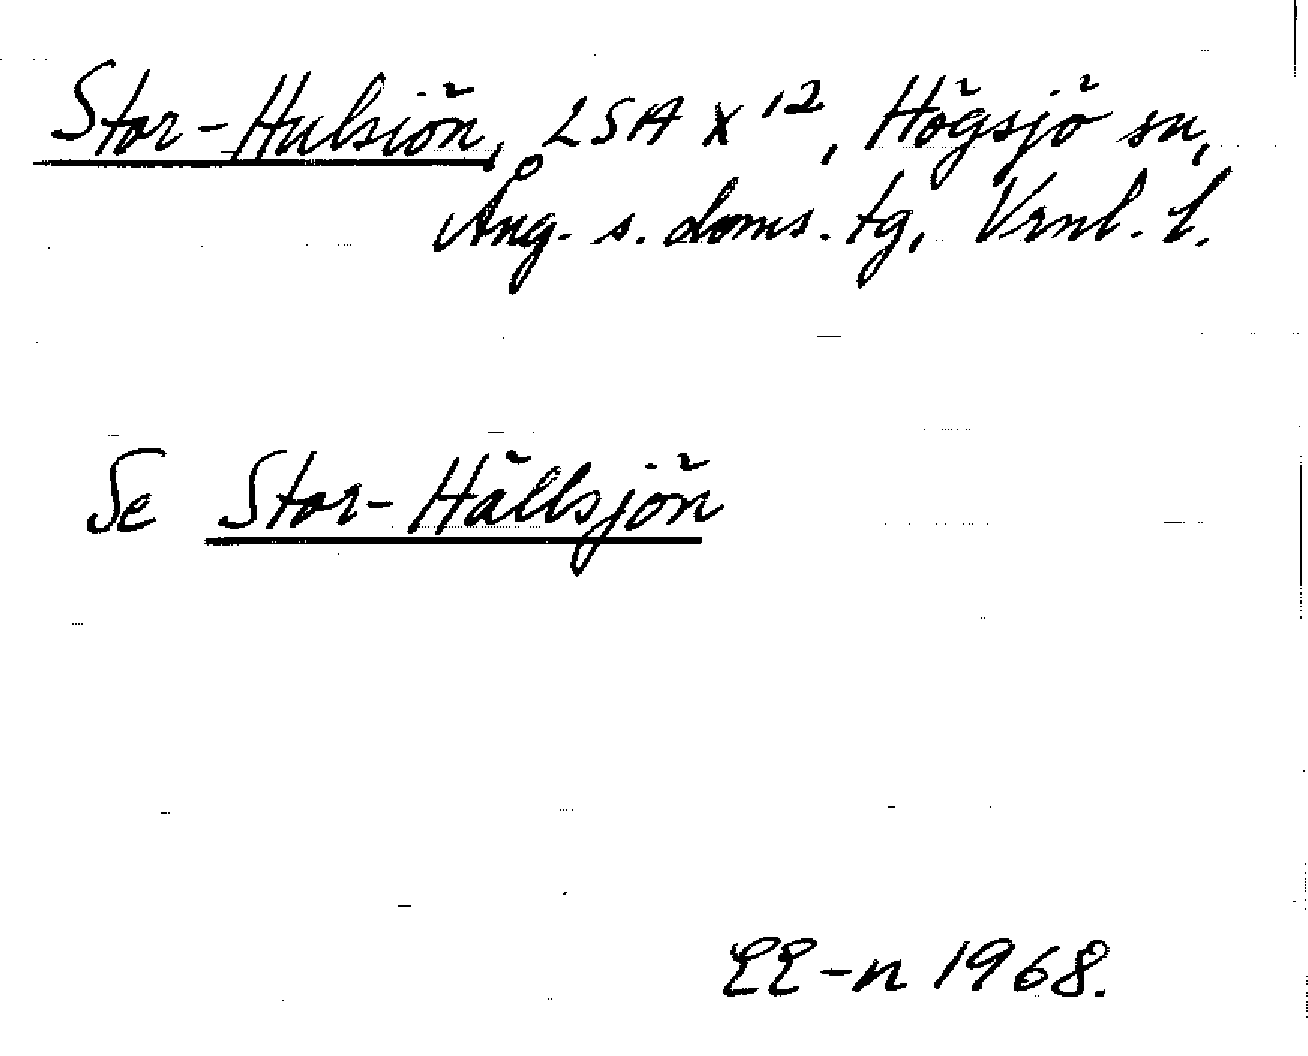 Stor-Halsiön, LSA X 12, Högsjö sn,
Ång. s. doms. tg, Vrnl. l.
Se Stor-Hällsjön
EE-n 1968.